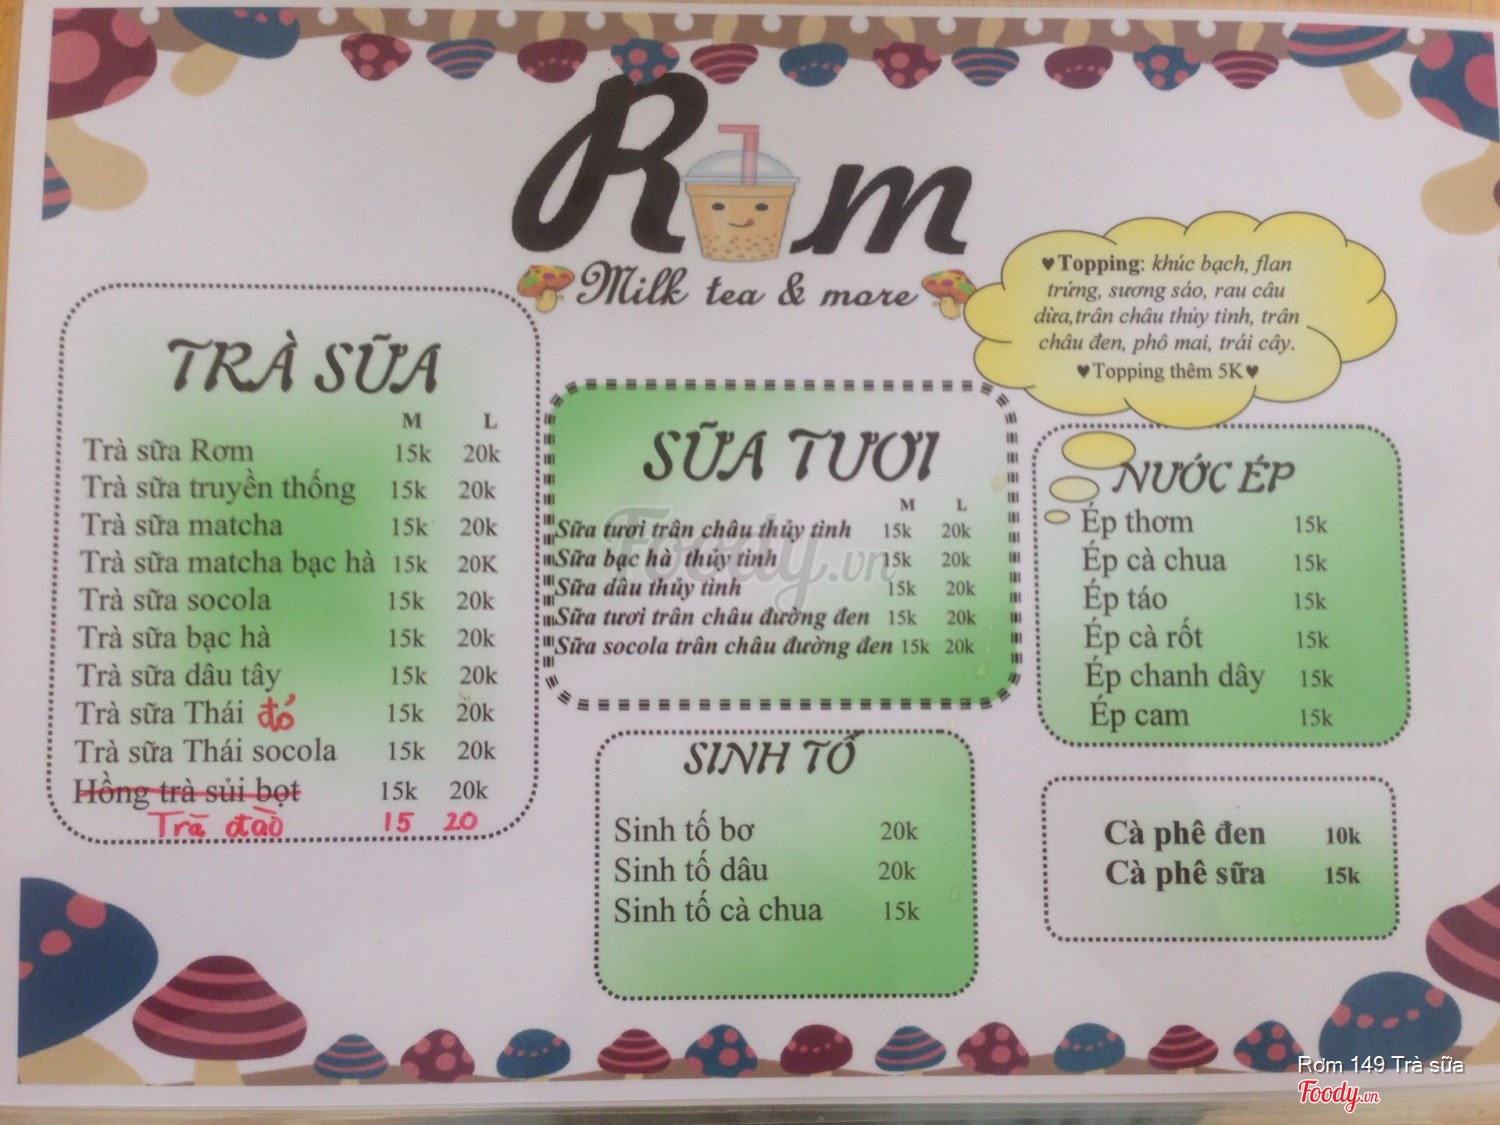 Rơm
Milk tea & more
♥Topping: khúc bạch, flan
trứng, sương sáo, rau câu
dừa,trân châu thủy tinh, trân
châu đen, phô mai, trái cây.
♥Topping thêm 5K♥
TRÀ SỮA
M L
Trà sữa Rơm 15k 20k
Trà sữa truyền thống 15k 20k
Trà sữa matcha 15k 20k
Trà sữa matcha bạc hà 15k 20K
Trà sữa socola 15k 20k
Trà sữa bạc hà 15k 20k
Trà sữa dâu tây 15k 20k
Trà sữa Thái đỏ 15k 20k
Trà sữa Thái socola 15k 20k
Hồng trà sủi bọt 15k 20k
Trà đào 15 20
SỮA TƯƠI
M L
Sữa tươi trân châu thủy tinh 15k 20k
Sữa bạc hà thủy tinh 15k 20k
Sữa dâu thủy tinh 15k 20k
Sữa tươi trân châu đường đen 15k 20k
Sữa socola trân châu đường đen 15k 20k
SINH TỐ
Sinh tố bơ 20k
Sinh tố dâu 20k
Sinh tố cà chua 15k
NƯỚC ÉP
Ép thơm 15k
Ép cà chua 15k
Ép táo 15k
Ép cà rốt 15k
Ép chanh dây 15k
Ép cam 15k
Cà phê đen 10k
Cà phê sữa 15k
Foody.vn
Rơm 149 Trà sữa
Foody.vn